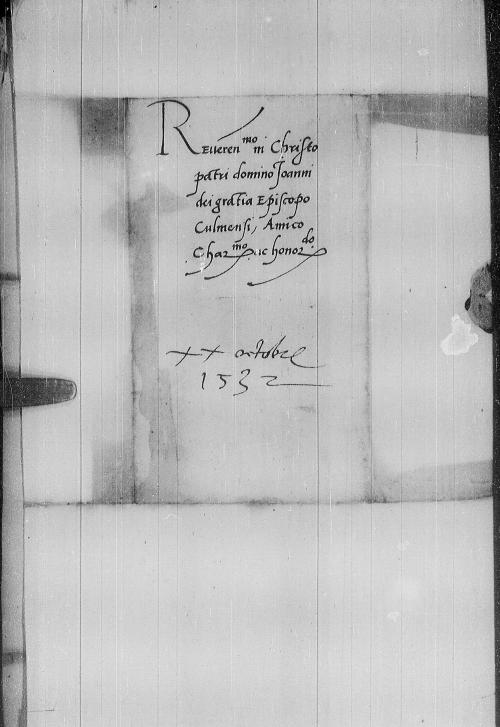 Reveren^mo in Christo
patri domino Joanni
dei gratia Episcopo
Culmensi, Amico
Char^mo ac honor^do
xx octobre
1532